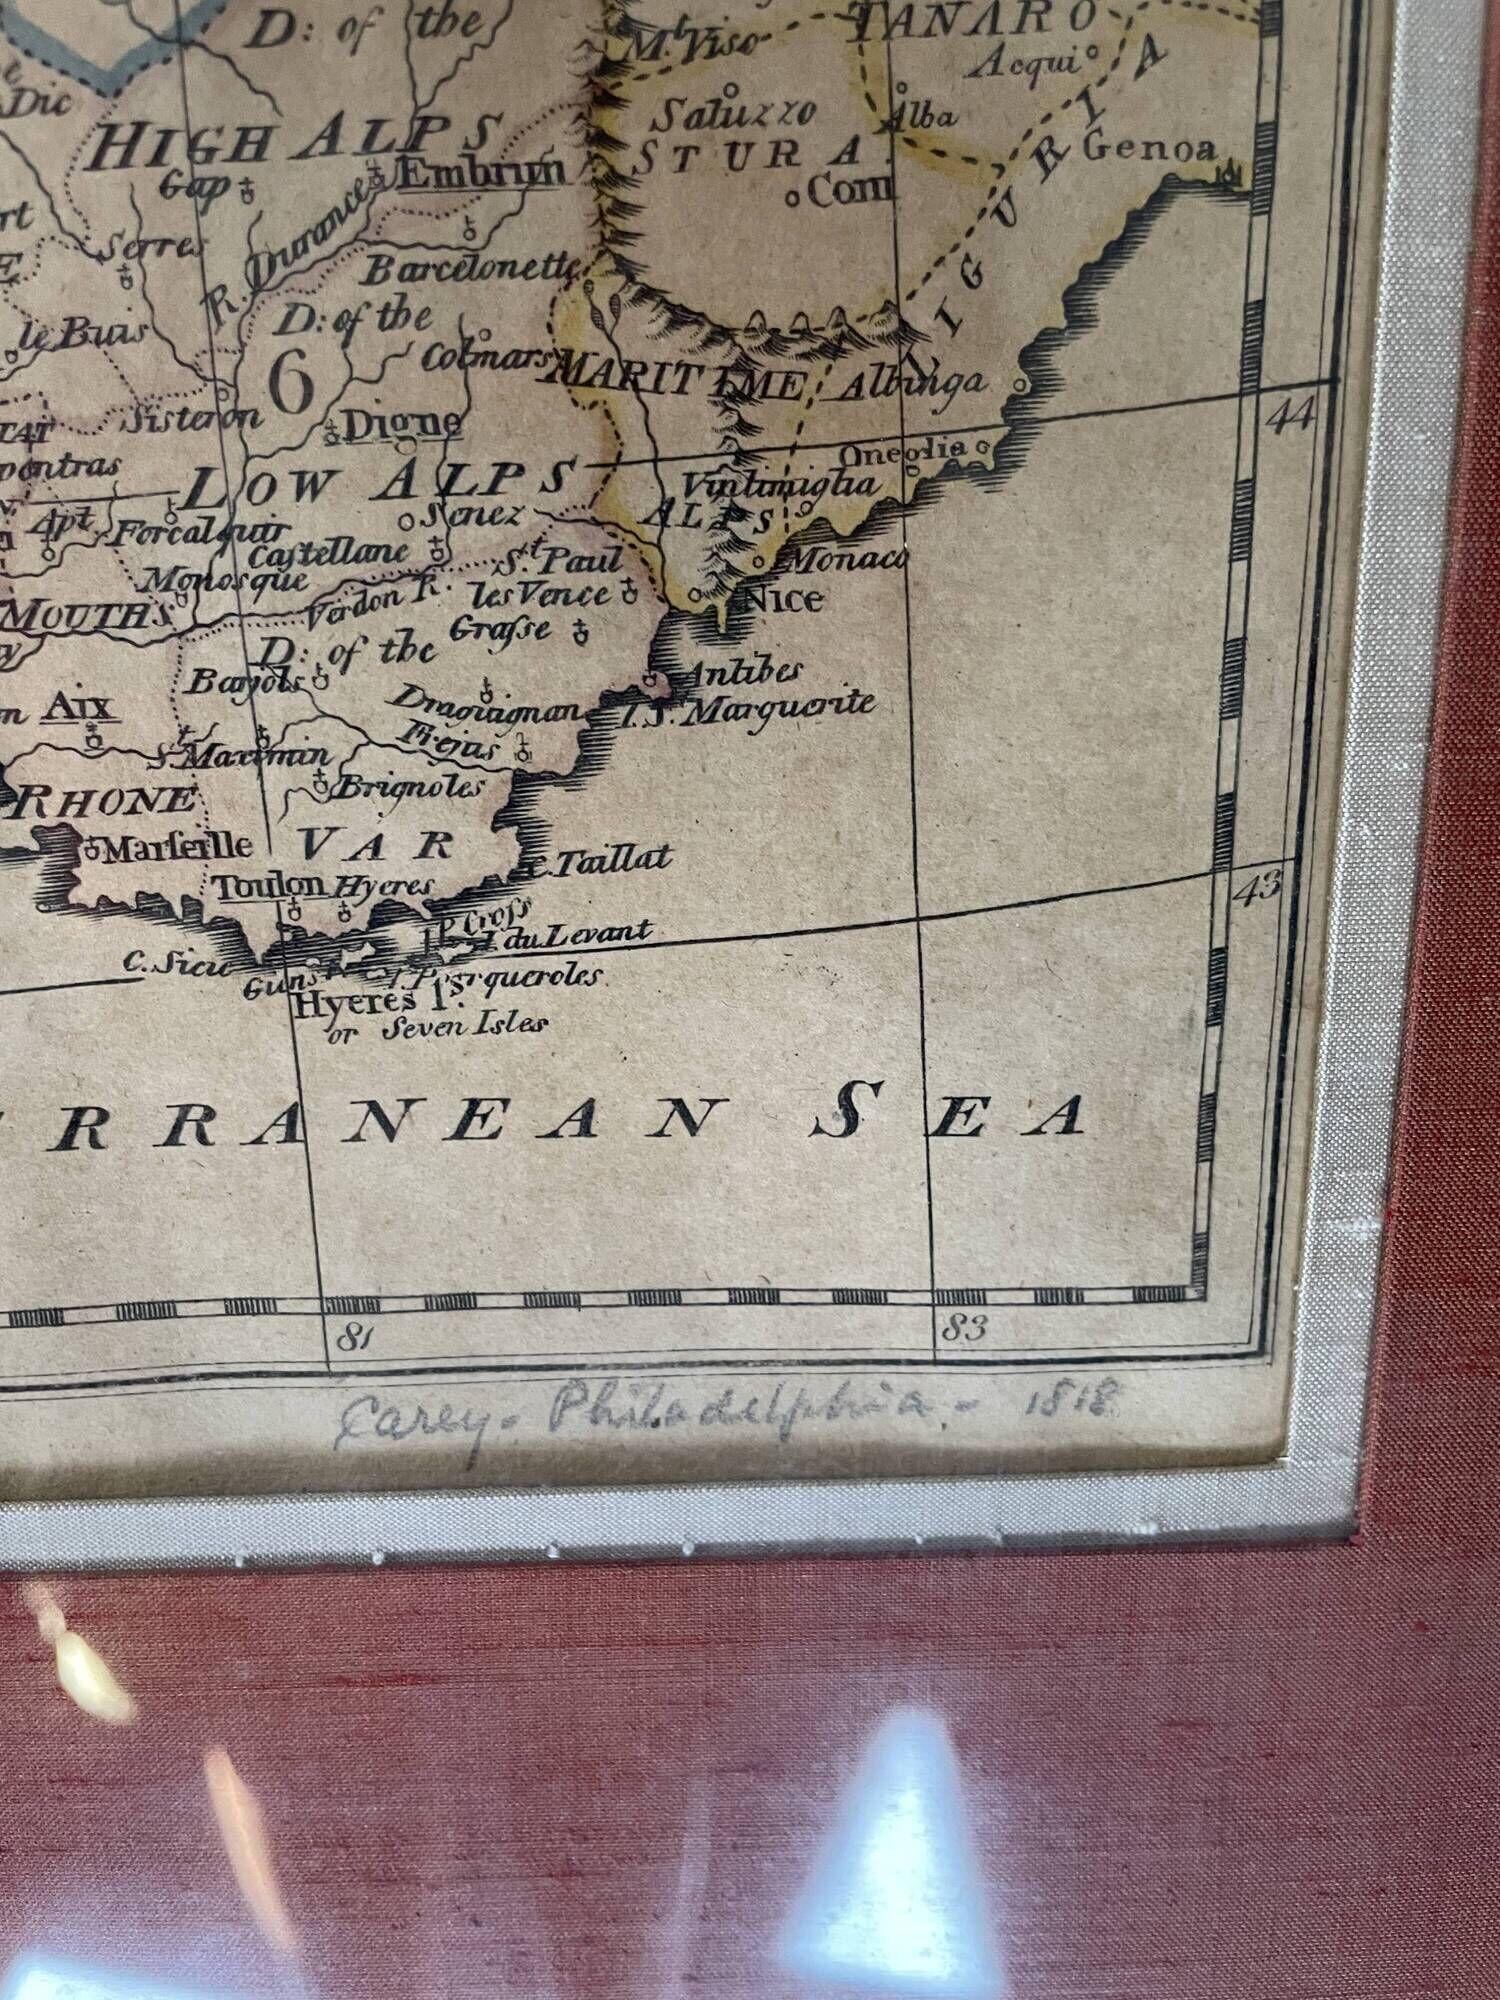 D: of the
Mt. Viso
TANARO
Acqui
Die
HIGH ALPS
Saluzzo
Alba
LIGURIA
Genoa
Gap
Embrun
STURA
Coni
R. Durance
Serres
Barcelonette
le Buis
D: of the
6
Colmars
MARITIME
Albinga
Sisteron
Digne
44
Oneglia
LOW ALPS
Vintimiglia
Apt
Forcalquir
Senez
ALPS
Castellane
St. Paul
Monaco
Monosque
les Vence
Nice
MOUTHS
Verdon R.
Grasse
D: of the
Barjols
Antibes
Aix
Draguignan
I. S. Marguerite
St. Maximin
Frejus
RHONE
Brignoles
Marseille
VAR
C. Taillat
Toulon
Hyeres
43
P. Cross
I. du Levant
C. Sicie
I. Porqueroles
Hyeres Is.
or Seven Isles
RRANEAN SEA
81
83
Carey - Philadelphia - 1818